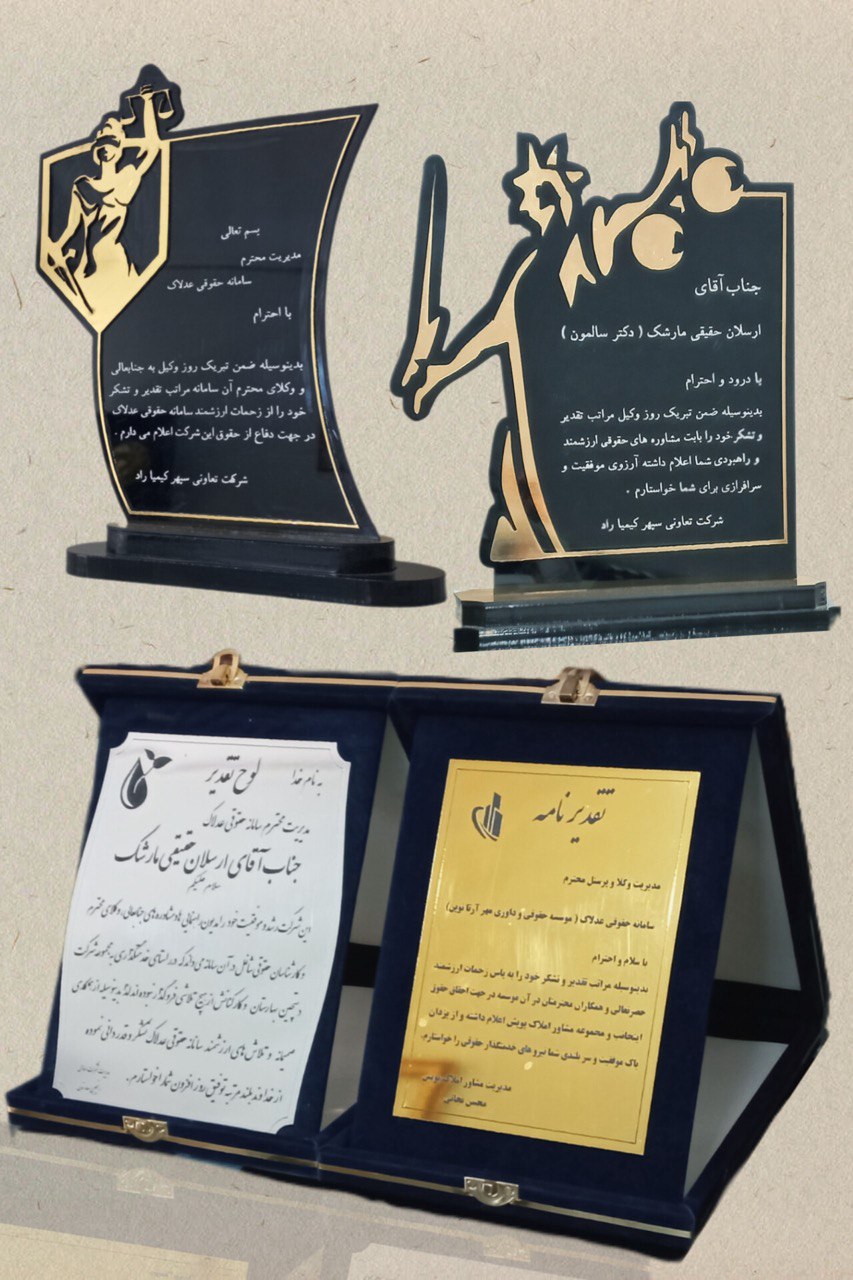 بسم تعالی
مدیریت محترم
سامانه حقوقی عدلاک
با احترام
بدینوسیله ضمن تبریک روز وکیل به جنابعالی
و وکلای محترم آن سامانه مراتب تقدیر و تشکر
خود را از زحمات ارزشمند سامانه حقوقی عدلاک
در جهت دفاع از حقوق این شرکت اعلام می دارم .
شرکت تعاونی سپهر کیمیا راد
جناب آقای
ارسلان حقیقی مارشک ( دکتر سالمون )
با درود و احترام
بدینوسیله ضمن تبریک روز وکیل مراتب تقدیر
و تشکر خود را بابت مشاوره های حقوقی ارزشمند
و راهبردی شما اعلام داشته آرزوی موفقیت و
سرافرازی برای شما خواستارم .
شرکت تعاونی سپهر کیمیا راد
به نام خدا
لوح تقدیر
مدیریت محترم سامانه حقوقی عدلاک
جناب آقای ارسلان حقیقی مارشک
سلام علیکم
این شرکت رشد و موفقیت خود را مدیون راهنمائی ها و مشاوره های جنابعالی و وکلای محترم
و کارشناسان حقوقی شاغل در آن سامانه می داند که در راستای خدمتگذاری به مجموعه شرکت
و کارکنانش از هیچ تلاشی فروگذار نبوده اند لذا بدینوسیله از همکاری
صمیمانه و تلاش های ارزشمند سامانه حقوقی عدلاک تشکر و قدردانی نموده
از خداوند بلند مرتبه توفیق روز افزون شما را خواستارم .
تقدیر نامه
مدیریت وکلا و پرسنل محترم
سامانه حقوقی عدلاک ( موسسه حقوقی و داوری مهر آرتا نوین)
با سلام و احترام
بدینوسیله مراتب تقدیر و تشکر خود را به پاس زحمات ارزشمند
حضرتعالی و همکاران محترمتان در آن موسسه در جهت احقاق حقوق
اینجانب و مجموعه مشاور املاک پویش اعلام داشته و از یزدان
پاک موفقیت و سر بلندی شما نیروهای خدمتگذار حقوقی را خواستارم.
مدیریت مشاور املاک پویش
محسن